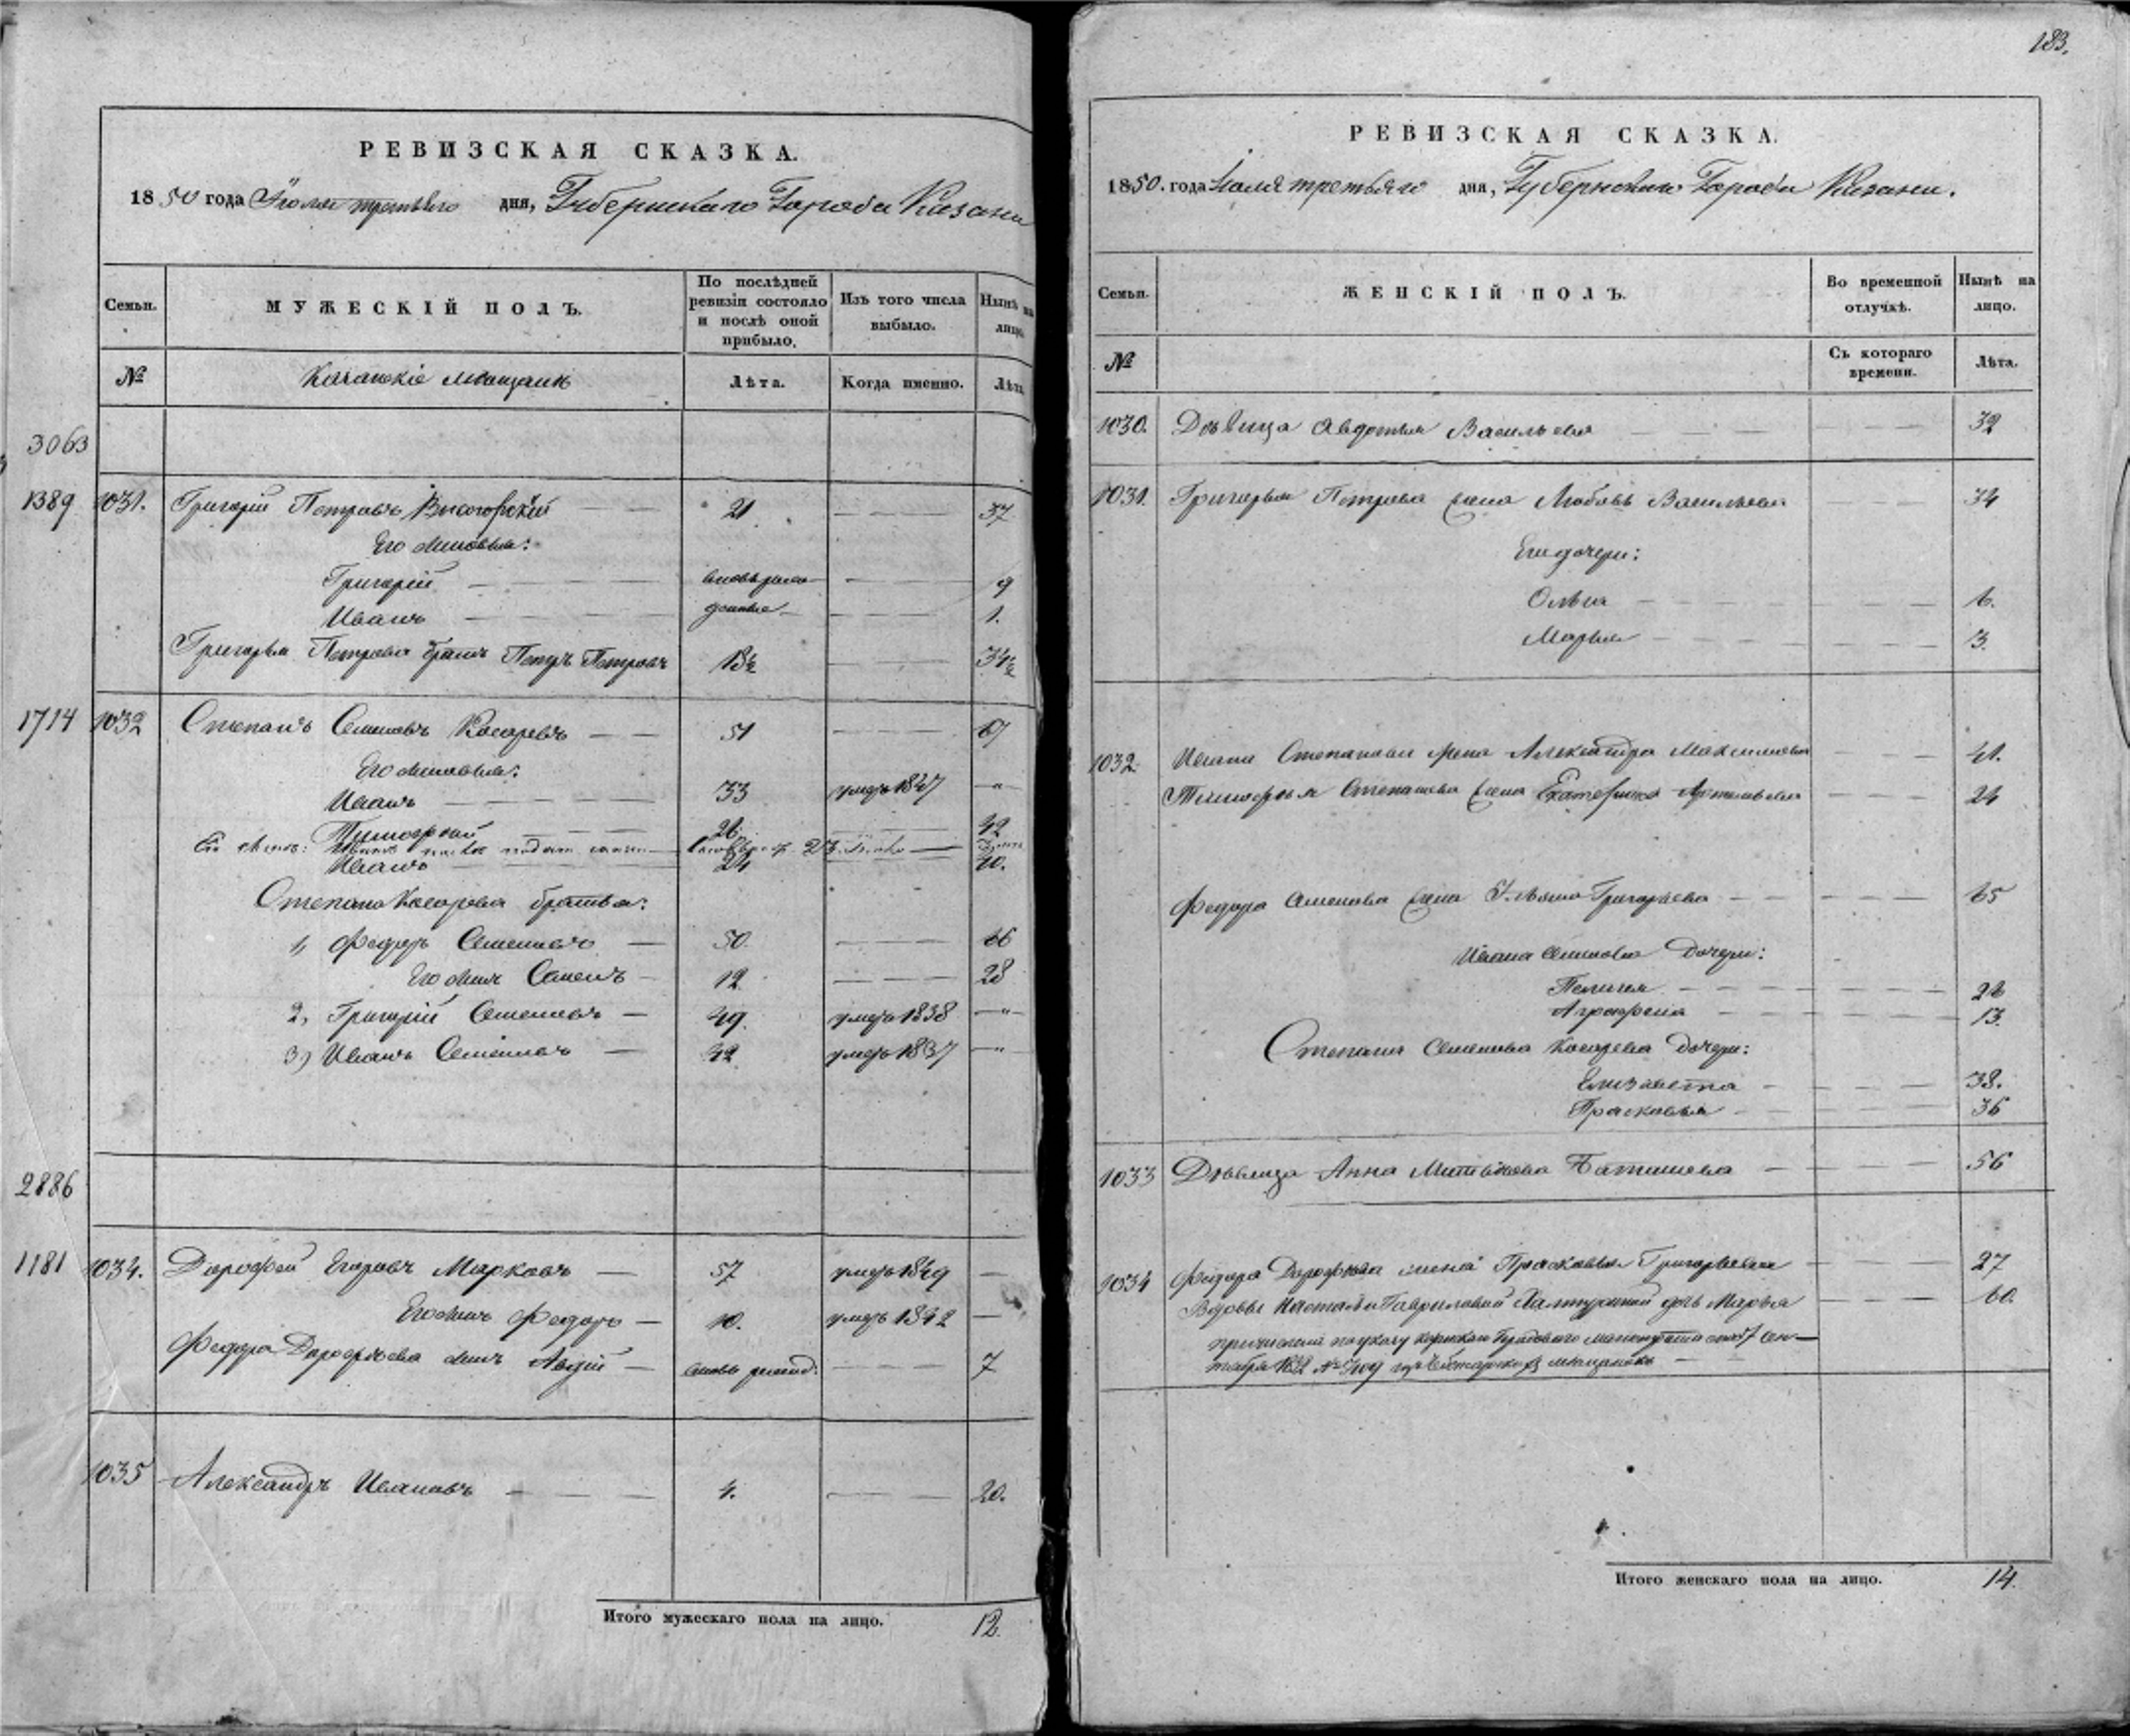 РЕВИЗСКАЯ СКАЗКА.
1850 года Іюля третьяго дня, Губернскаго Города Казани
Семьи.
МУЖЕСКІЙ ПОЛЪ.
По послѣдней ревизіи состояло и послѣ оной прибыло.
Изъ того числа выбыло.
Нынѣ на лицо.
№
Казанскіе мѣщане
Лѣта.
Когда именно.
Лѣта
3063
1389 1031. Григорій Петровъ Высогорскій — 21 37
Его сыновья:
Григорій — вновь рож- — 9
Иванъ — денные — 1.
Григорья Петрова братъ Петръ Петровъ 18½ — 34½
1714 1032 Степанъ Семеновъ Косаревъ — 51 — 67
Его сыновья:
Иванъ — 33 умеръ 1847 — "
Тимофей — 26 — 42
Его сынъ: Иванъ
Иванъ — 24 — 40.
Степана Косарева братья:
1, Федоръ Семеновъ — 50. — 66
Его сынъ Семенъ — 12. — 28
2, Григорій Семеновъ — 49. умеръ 1838 — "
3) Иванъ Семеновъ — 42. умеръ 1837 — "
2886
1181 1034. Дорофей Егоровъ Марковъ — 57 умеръ 1849 —
Его сынъ Федоръ — 10. умеръ 1842 —
Федора Дорофѣева сынъ Авдій — вновь рожд: — 7
1035 Александръ Ивановъ — 4. — 20.
Итого мужескаго пола на лицо. 12.
183.
РЕВИЗСКАЯ СКАЗКА.
1850. года Іюля третьяго дня, Губернскаго Города Казани.
Семьи.
ЖЕНСКІЙ ПОЛЪ.
Во временной отлучкѣ.
Нынѣ на лицо.
№
Съ котораго времени.
Лѣта.
1030. Дѣвица Авдотья Васильева — 32
1031. Григорья Петрова жена Любовь Васильева — 34
Его дочери:
Ольга — 6.
Марья — 3.
1032. Ивана Степанова жена Александра Максимова — 41.
Тимофея Степанова жена Екатерина Артемьева — 24
Федора Семенова жена Ульяна Григорьева — 65
Ивана Семенова Дочери:
Пелагея — 26
Аграфена — 13.
Степана Семенова Косарева Дочери:
Елизавета — 38.
Прасковья — 36
1033 Дѣвица Анна — 56
1034 Федора Дорофѣева жена Прасковья Григорьевна — 27
Вдовы Натальи Гавриловой дочь Марья — 60.
Итого женскаго пола на лицо. 14.